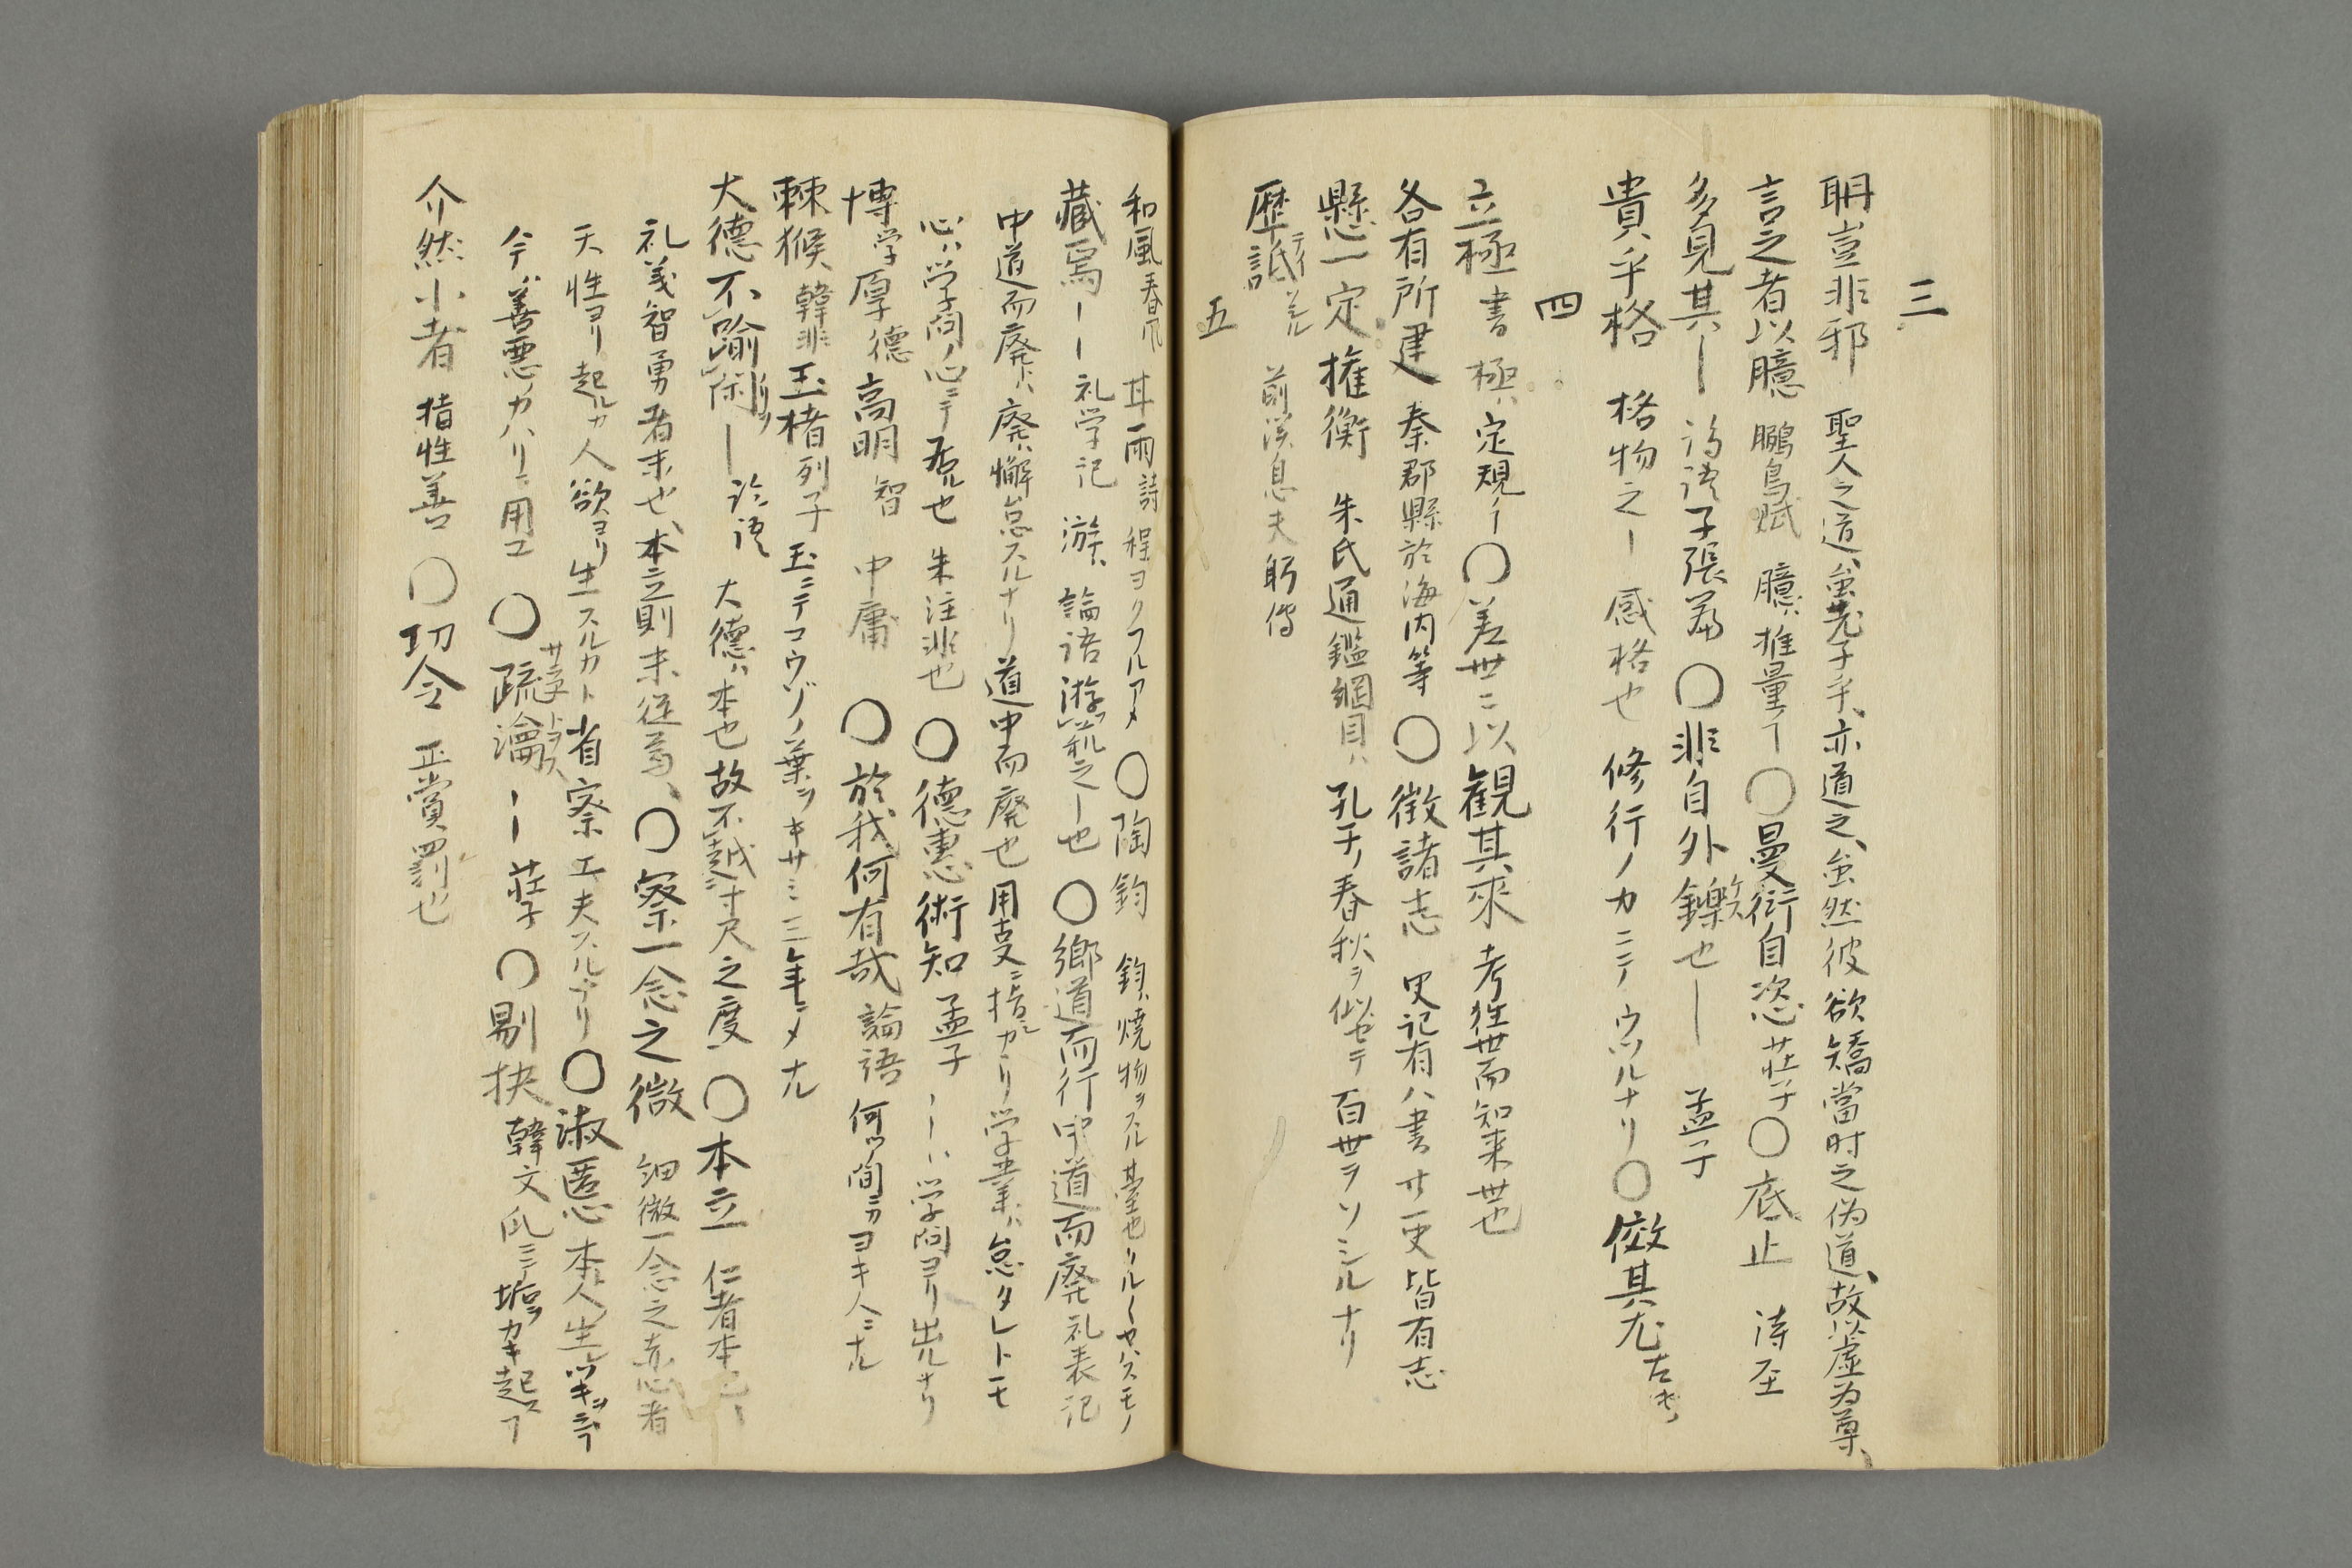 三
明豈非邪 聖人之道、虽荘子乎、亦道之、虽然彼欲矯當时之偽道、故以虚为尊、
言之者以臆 鵬鳥賦 臆ハ推量ヿ ○曼衍自恣 荘子 ○底止 待至
多見其ー 論语子張篇 ○非自外鑠也ー 孟子
貴乎格 格物之ー 感格也 修行ノカニテウツルナリ ○倣其尤 左傳
四
立極 書 極ハ定規ヿ ○差世ニ以観其來 考往世而知来世也
各有所建 秦郡縣於海内等 ○徴諸志 史記有八書廿一史皆有志
懸一定權衡 朱氏通鑑綱目ハ孔子ノ春秋ヲ似セテ百世ヲソシルナリ
歷詆 テイ 前漢息夫躬傳
五
和風 春風 甘雨 詩 程ヨクフルアメ ○陶鈞 鈞ハ焼物ヲスル臺也
藏焉ーー 礼学记 游ハ論语游藝之ー也 ○鄉道而行中道而廃 礼表记
中道而廃ハ廃ハ懈怠スルナリ 道中而廃也 学業ハ怠タレトモ
心ハ学問ノ心ニテ 也 朱注非也 ○德惠術知 孟子 ーーハ学問ヨリ出ルナリ
博学厚德 高明智 中庸 ○於我何有哉 論語 何ノ間ニカヨキ人ニナル
棘猴 韓非 玉楮 列子 玉ニテコウゾノ葉ヲキサミ三年ニメナル
大德不踰閑ー 论语 大德ハ本也故不越寸尺之度 ○本立 仁者本也
礼義智勇者末也、本立則末從焉、 ○察一念之微 细微一念之善恶者
天性ヨリ起ルカ人欲ヨリ生スルカト省察工夫スルナリ ○淑慝
今善悪カハリニ用ユ ○疏瀹ーー 荘子 ○剔抉 韓文 爪ニテ垢ヲカキ起スヿ
介然小者 指性善 ○功令 正賞罰也